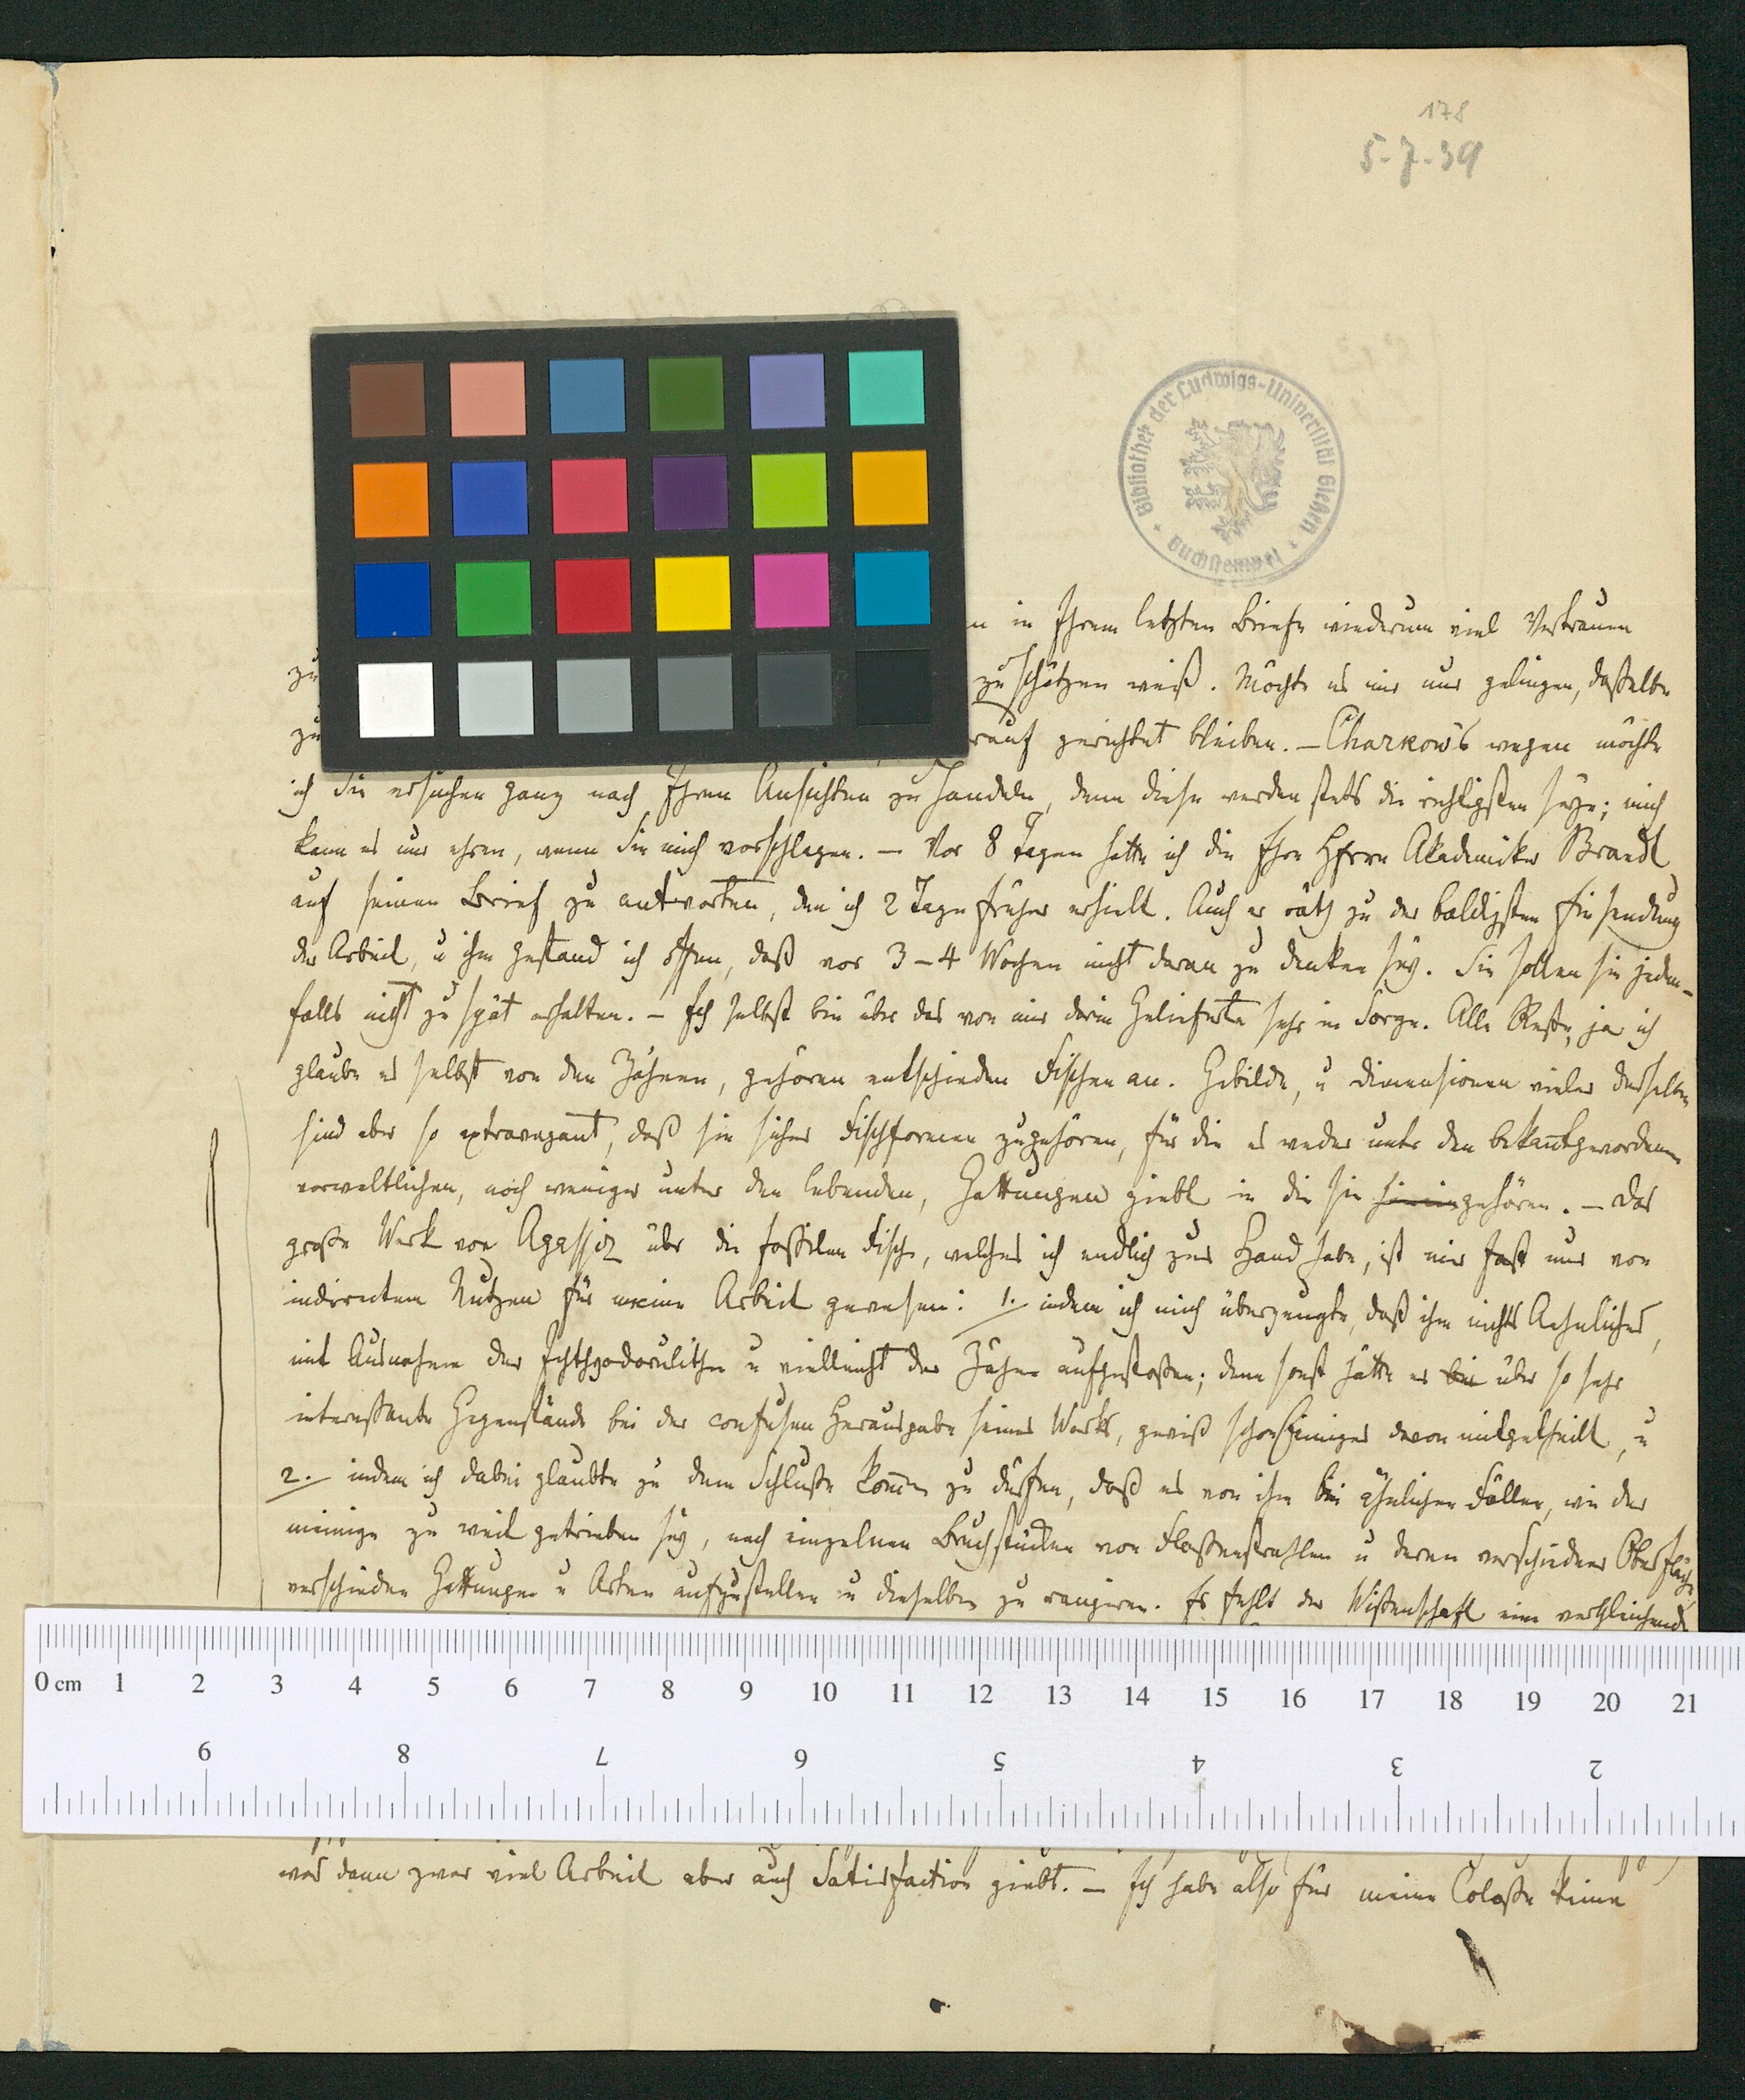 178
5-7-39
Bibliothek der Ludwigs-Universität Giessen
in Ihrem letzten Briefe wiederum viel Vertrauen
zu zu schätzen weiß. Möchte es mir nur gelingen, daßelbe
zu rauf gerichtet bleiben. – Charkow's wegen möchte
ich Sie ersuchen ganz nach Ihren Ansichten zu handeln, denn diese werden stets die richtigsten seyn; mich
kann es nur ehren, wenn Sie mich vorschlagen. – Vor 8 Tagen hatte ich die Ehre Hherrn Akademiker Brandt
auf seinen Brief zu antworten, den ich 2 Tage früher erhielt. Auch er räth zu der baldigsten Einsendung
der Arbeit, u ihm gestand ich offen, daß vor 3–4 Wochen nicht daran zu denken sey. Sie sollen sie jeden-
falls nicht zu spät erhalten. – Ich selbst bin über das von mir darin Gelieferte sehr in Sorge. Alle Reste, ja ich
glaube es selbst von den Zähnen, gehören entschieden Fischen an. Gebilde, u Dimensionen vieler derselben
sind aber so extravagant, daß sie sicher Fischformen zugehören, für die es weder unter den bekañtgewordenen
vorweltlichen, noch weniger unter den lebenden, Gattungen giebt in die sie hineingehören. – Das
große Werk von Agassiz über die foßilen Fische, welches ich endlich zur Hand habe, ist mir fast nur von
indirectem Nutzen für meine Arbeit gewesen: 1. indem ich mich überzeugte, daß ihm nichts Aehnliches,
mit Ausnahme der Ichthyodorulithen u vielleicht der Zähne aufgestoßen; denn sonst hätte er bei über so sehr
intereßante Gegenstände bei der confusen Herausgabe seines Werks, gewiß schon Einiges davon mitgetheilt, u
2. indem ich dabei glaubte zu dem Schluße kom̄en zu dürfen, daß es von ihm bei ähnlichen Fällen, wie der
meinige zu weit getrieben sey, nach einzelnen Bruchstücken von Floßenstrahlen u deren verschiedener Oberfläche
verschiedene Gattungen u Arten aufzustellen u dieselben zu rangiren. Es fehlt der Wißenschaft eine vergleichende
0 cm 1 2 3 4 5 6 7 8 9 10 11 12 13 14 15 16 17 18 19 20 21
9 8 7 6 5 4 3 2
was dann zwar viel Arbeit aber auch Satisfaction giebt. – Ich habe also für meine Coloße keine